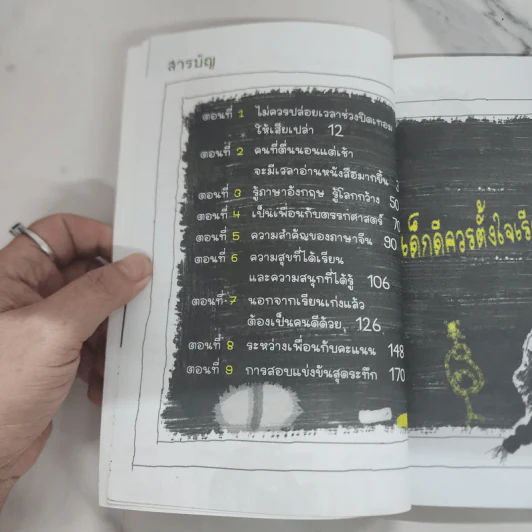 สารบัญ
ตอนที่ 1 ไม่ควรปล่อยเวลาช่วงปิดเทอม
ให้เสียเปล่า 12
ตอนที่ 2 คนที่ตื่นนอนแต่เช้า
จะมีเวลาอ่านหนังสือมากขึ้น
ตอนที่ 3 รู้ภาษาอังกฤษ รู้โลกกว้าง 50
ตอนที่ 4 เป็นเพื่อนกับตรรกศาสตร์ 70
ตอนที่ 5 ความสำคัญของภาษาจีน 90
ตอนที่ 6 ความสุขที่ได้เรียน
และความสนุกที่ได้รู้ 106
ตอนที่ 7 นอกจากเรียนเก่งแล้ว
ต้องเป็นคนดีด้วย 126
ตอนที่ 8 ระหว่างเพื่อนกับคะแนน 148
ตอนที่ 9 การสอบแข่งขันสุดระทึก 170
เด็กดีควรตั้งใจเรี